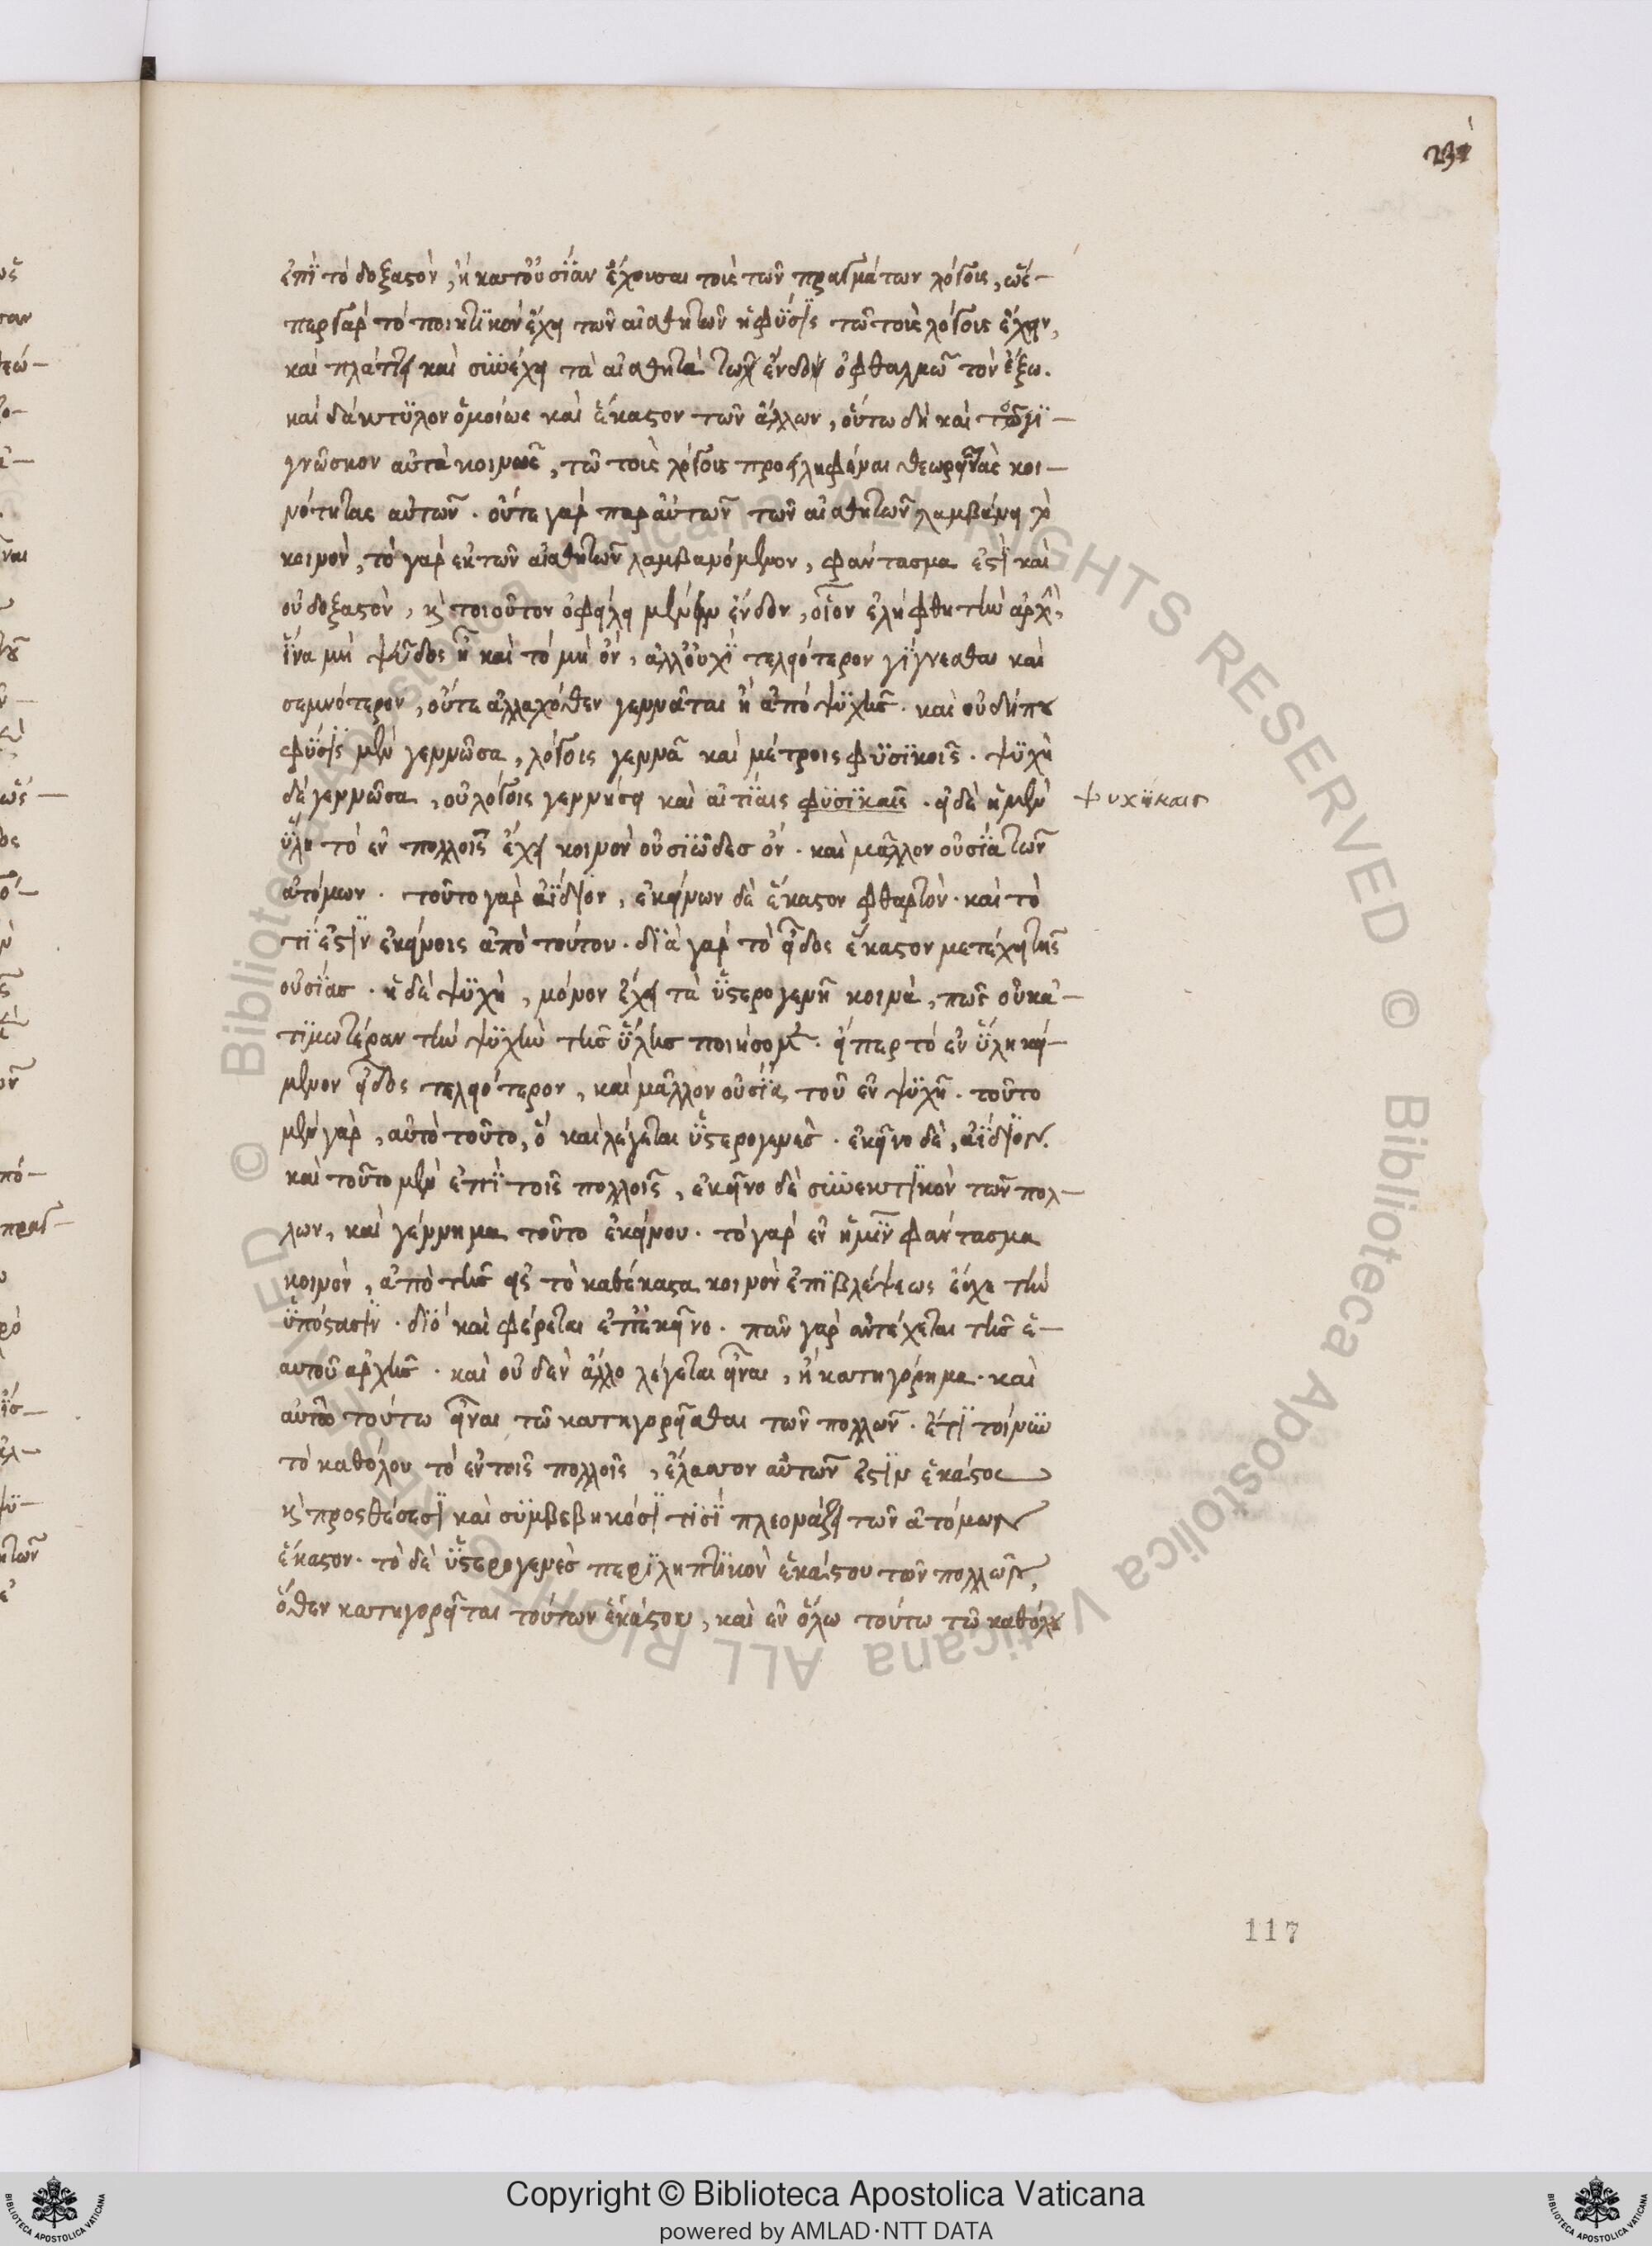 ἐπὶ τὸ δοξαστὸν, ἢ κατ' οὐσίαν ἔχουσαι τοὺς τῶν πραγμάτων λόγους, ὥσ-
περ γὰρ τὸ ποιητικὸν ἔχει τῶν αἰσθητῶν ἡ φύσις τῶ τοὺς λόγους ἔχειν,
καὶ πλάττει καὶ συνέχει τὰ αἰσθητὰ τῶ ἔνδον ὀφθαλμῶ τὸν ἔξω.
καὶ δάκτυλον ὁμοίως καὶ ἕκαστον τῶν ἄλλων, οὕτω δὴ καὶ τὸ γι-
γνῶσκον αὐτὰ κοινῶς, τῶ τοὺς λόγους προειληφέναι θεωρεῖ τὰς κοι-
νότητας αὐτῶν. οὔτε γὰρ παρ' αὐτῶν τῶν αἰσθητῶν λαμβάνει τὸ
κοινὸν, τὸ γὰρ ἐκ τῶν αἰσθητῶν λαμβανόμενον, φάντασμα ἐστὶ καὶ
οὐ δοξαστὸν, καὶ τοιοῦτον ὀφείλει μένειν ἔνδον, οἷον ἐλήφθη τὴν ἀρχὴν,
ἵνα μὴ ψεῦδος ἦ καὶ τὸ μὴ ὂν, ἀλλ' οὐχὶ τελειότερον γίγνεσθαι καὶ
σεμνότερον, οὔτε ἀλλαχόθεν γεννᾶται ἢ ἀπὸ ψυχῆς. καὶ οὐ δήπου
φύσις μὲν γεννῶσα, λόγοις γεννᾶ καὶ μέτροις φυσικοῖς. ψυχὴ
δὲ γεννῶσα, οὐ λόγοις γεννήσει καὶ αἰτίαις φυσικαῖς. εἰ δὲ ἡ μὲν
ψυχικαις
ὕλη τὸ ἐν πολλοῖς ἔχει κοινὸν οὐσιῶδες ὂν. καὶ μᾶλλον οὐσία τῶν
ἀτόμων. τοῦτο γὰρ ἀΐδιον, ἐκείνων δὲ ἕκαστον φθαρτὸν. καὶ τὸ
τί ἐστιν ἐκείνοις ἀπὸ τούτου. διὰ γὰρ τὸ εἶδος ἕκαστον μετέχει τῆς
οὐσίας. ἡ δὲ ψυχὴ, μόνον ἔχει τὰ ὑστερογενῆ κοινὰ, πῶς οὐκ ἀ-
τιμωτέραν τὴν ψυχὴν τῆς ὕλης ποιήσομεν. εἴπερ τὸ ἐν ὕλη κεί-
μενον εἶδος τελειότερον, καὶ μᾶλλον οὐσία, τοῦ ἐν ψυχῆ. τοῦτο
μὲν γὰρ, αὐτὸ τοῦτο, ὃ καὶ λέγεται ὑστερογενὲς. ἐκεῖνο δὲ, ἀΐδιον.
καὶ τοῦτο μὲν ἐπὶ τοῖς πολλοῖς, ἐκεῖνο δὲ συνεκτικὸν τῶν πολ-
λων, καὶ γέννημα τοῦτο ἐκείνου. τὸ γὰρ ἐν ἡμῖν φάντασμα
κοινὸν, ἀπὸ τῆς εἰς τὸ καθέκαστα κοινὸν ἐπιβλέψεως ἔσχε τὴν
ὑπόστασιν. διὸ καὶ φέρεται ἐπ' ἐκεῖνο. πᾶν γὰρ ἀντέχεται τῆς ἑ-
αυτοῦ ἀρχῆς. καὶ οὐδὲν ἄλλο λέγεται εἶναι, ἢ κατηγόρημα. καὶ
αὐτῶ τούτω εἶναι τῶ κατηγορεῖσθαι τῶν πολλῶν. ἔτι τοίνυν
τὸ καθόλου τὸ ἐν τοῖς πολλοῖς, ἔλαττον αὐτῶν ἐστιν ἑκάστου
καὶ προσθέσεσι καὶ συμβεβηκόσι τισὶ πλεονάζει τῶν ἀτόμων
ἕκαστον. τὸ δὲ ὑστερογενὲς περιληπτικὸν ἑκάστου τῶν πολλῶν,
ὅθεν κατηγορεῖται τούτων ἑκάστου, καὶ ἐν ὅλω τούτω τῶ καθόλου
117
© Biblioteca Apostolica Vaticana ALL RIGHTS RESERVED
Copyright © Biblioteca Apostolica Vaticana
powered by AMLAD·NTT DATA